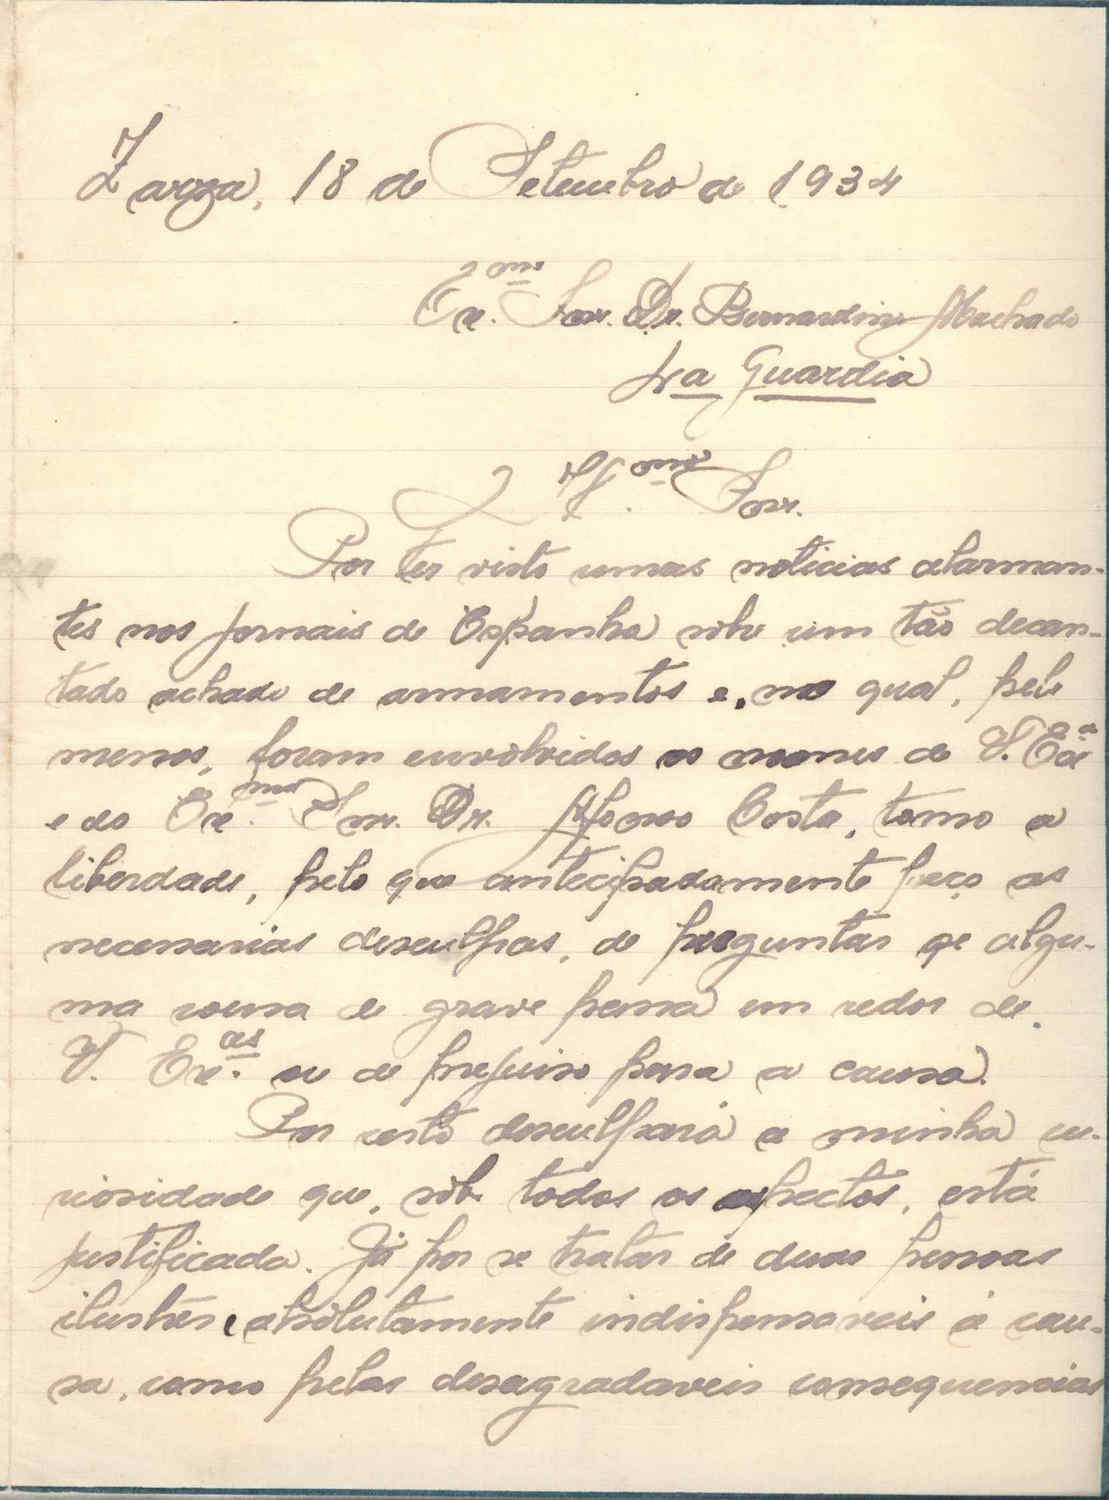 Zarza, 18 de Setembro de 1934
Ex.mo Snr. Dr. Bernardino Machado
La Guardia
Il.mo Snr.
Por ter visto umas noticias alarman-
tes nos jornais de Espanha sôbre um tão decan-
tado achado de armamentos e, no qual, pelo
menos, foram envolvidos os nomes de V. Exa
e do Exmo. Snr. Dr. Afonso Costa, tomo a
liberdade, pelo que antecipadamente peço as
necessarias desculpas, de preguntar se algu-
ma cousa de grave pensa em redor de
V. Ex.as ou de prejuiso para a causa.
Por certo desculpará a minha cu-
riosidade que, sôbe todos os aspectos, está
justificada. Já por se tratar de duas pessoas
ilustres e absolutamente indispensaveis á cau-
sa, como pelas desagradaveis consequencias